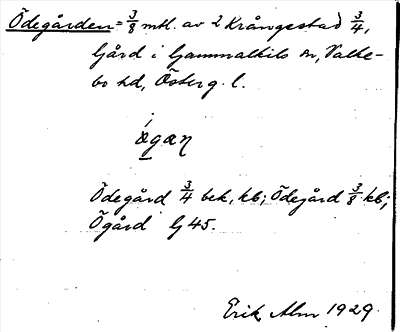 Ödegården = 3/8 mtl. av 2 Krångestad 3/4,
Gård i Gammalkils sn, Valke-
bo hd, Österg. l.
øgæn
Ödegård 3/4 bek, kb; Ödegård 3/8 kb;
Ögård G 45.
Erik Alm 1929